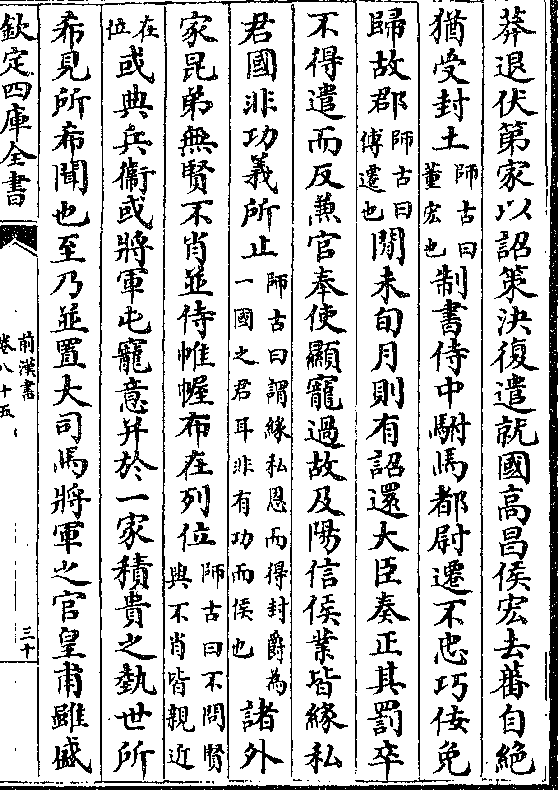 莽退伏第家以詔策決復遣就國高昌侯宏去蕃自絶
猶受封土師古曰董宏也制書侍中駙馬都尉遷不忠巧佞免
歸故郡師古曰傅遷也間未旬月則有詔還大臣奏正其罰卒
不得遣而反兼官奉使顯寵過故及陽信侯業皆緣私
君國非功義所止師古曰謂緣私恩而得封爵為一國之君耳非有功而侯也諸外
家昆弟無賢不肖並侍帷幄布在列位師古曰不問賢與不肖皆親近
在位或典兵衞或將軍屯寵意并於一家積貴之埶世所
希見所希聞也至乃並置大司馬將軍之官皇甫雖盛
欽定四庫全書
前漢書
卷八十五
三十